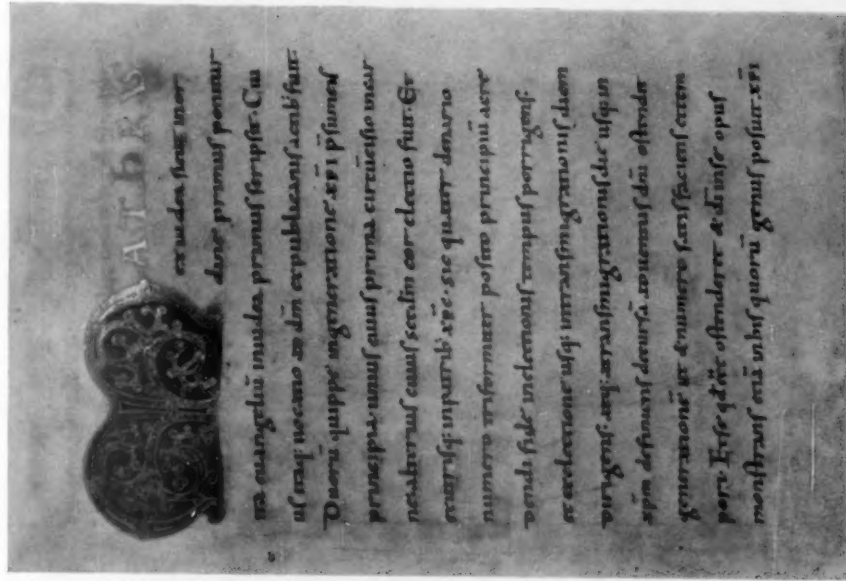 MATHEUS
ex iudea sicut inor
dine primus ponitur
ita euangeliū iniudea primus scripsit. Cui
us uocatio ad dm̄ expublicanis actib; fuit.
Duorū quippe ingeneratione xp̄i p̄sumens
principia. unius cuius prima circūcisio incar
ne. alterius cuius scdm̄ cor electio fuit. Et
exutrisq; inpatrib; xp̄c. sic quater denario
numero triformiter posito principiū acre
dendi fide inelectionis tempus porrigens.
exelectione usq; intransmigrationis diem
dirigens. atq; atransmigrationis die usq; in
xp̄m definiens decursā aduentus dn̄i ostendit
generationē ut & numero satisfaciens & tem
pori. Et se qd eēt ostenderet & di inse opus
monstrans etiā inhis quorū genus posuit. xp̄i